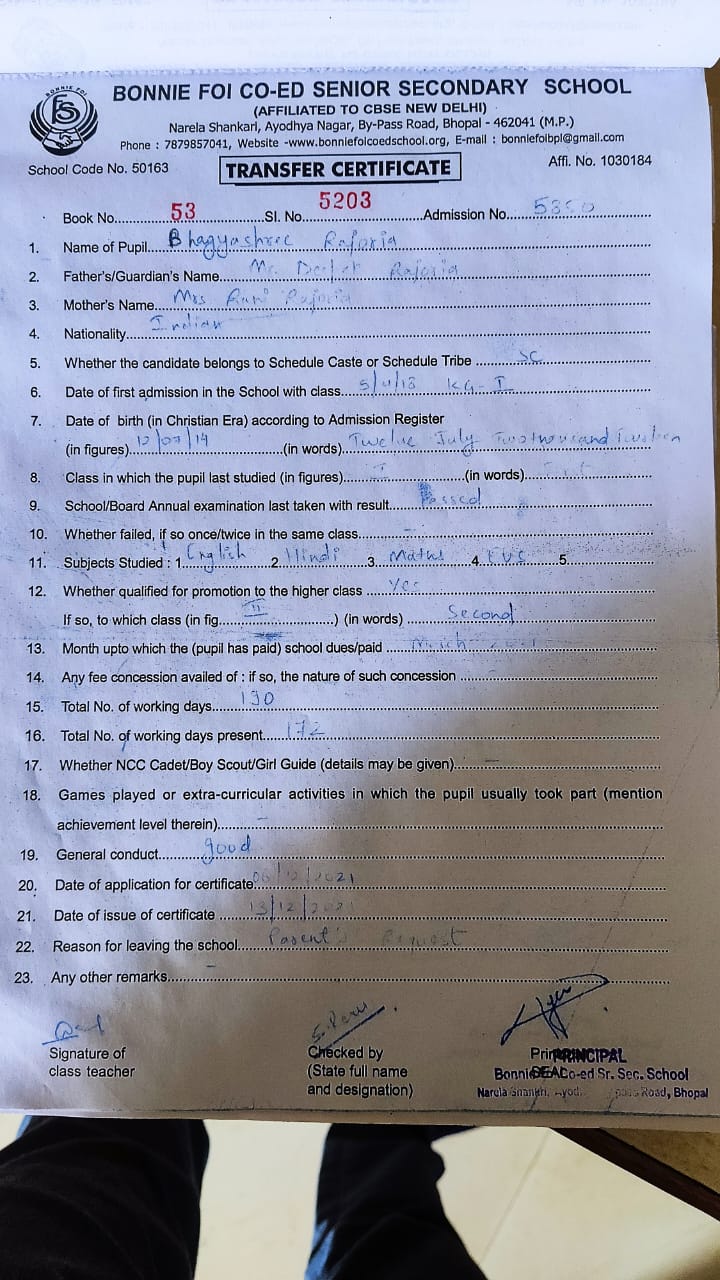 BONNIE FOI
BONNIE FOI CO-ED SENIOR SECONDARY SCHOOL
(AFFILIATED TO CBSE NEW DELHI)
Narela Shankari, Ayodhya Nagar, By-Pass Road, Bhopal - 462041 (M.P.)
Phone : 7879857041, Website -www.bonniefoicoedschool.org, E-mail : bonniefoibpl@gmail.com
School Code No. 50163 TRANSFER CERTIFICATE Affi. No. 1030184
Book No. 53 Sl. No. 5203 Admission No.
1. Name of Pupil Bhagyashree Rajoria
2. Father's/Guardian's Name Mr. Rajoria
3. Mother's Name Mrs Rani Rajoria
4. Nationality Indian
5. Whether the candidate belongs to Schedule Caste or Schedule Tribe SC
6. Date of first admission in the School with class 5/4/18 KG-I
7. Date of birth (in Christian Era) according to Admission Register
(in figures) 12/07/14 (in words) Twelve July Twothousand
8. Class in which the pupil last studied (in figures) I (in words)
9. School/Board Annual examination last taken with result Passed
10. Whether failed, if so once/twice in the same class -
11. Subjects Studied : 1. English 2. Hindi 3. Maths 4. EVS 5.
12. Whether qualified for promotion to the higher class Yes
If so, to which class (in fig. II ) (in words) Second
13. Month upto which the (pupil has paid) school dues/paid March
14. Any fee concession availed of : if so, the nature of such concession -
15. Total No. of working days 190
16. Total No. of working days present 172
17. Whether NCC Cadet/Boy Scout/Girl Guide (details may be given) -
18. Games played or extra-curricular activities in which the pupil usually took part (mention
achievement level therein) -
19. General conduct good
20. Date of application for certificate 06/12/2021
21. Date of issue of certificate 13/12/2021
22. Reason for leaving the school Parent's Request
23. Any other remarks -
Signature of
class teacher
Checked by
(State full name
and designation)
PRINCIPAL
SEAL
Bonnie Co-ed Sr. Sec. School
Road, Bhopal